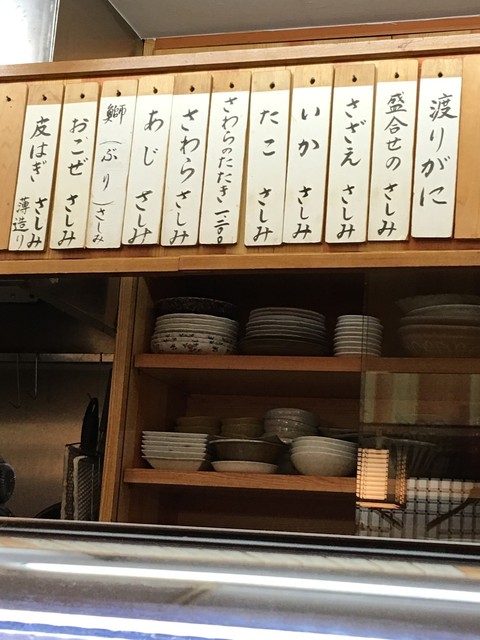 渡りがに
盛合せの さしみ
さざえ さしみ
いか さしみ
たこ さしみ
さわらのたたき 一二〇〇
さわら さしみ
あじ さしみ
鰤(ぶり)さしみ
おこぜ さしみ
皮はぎ さしみ 薄造り